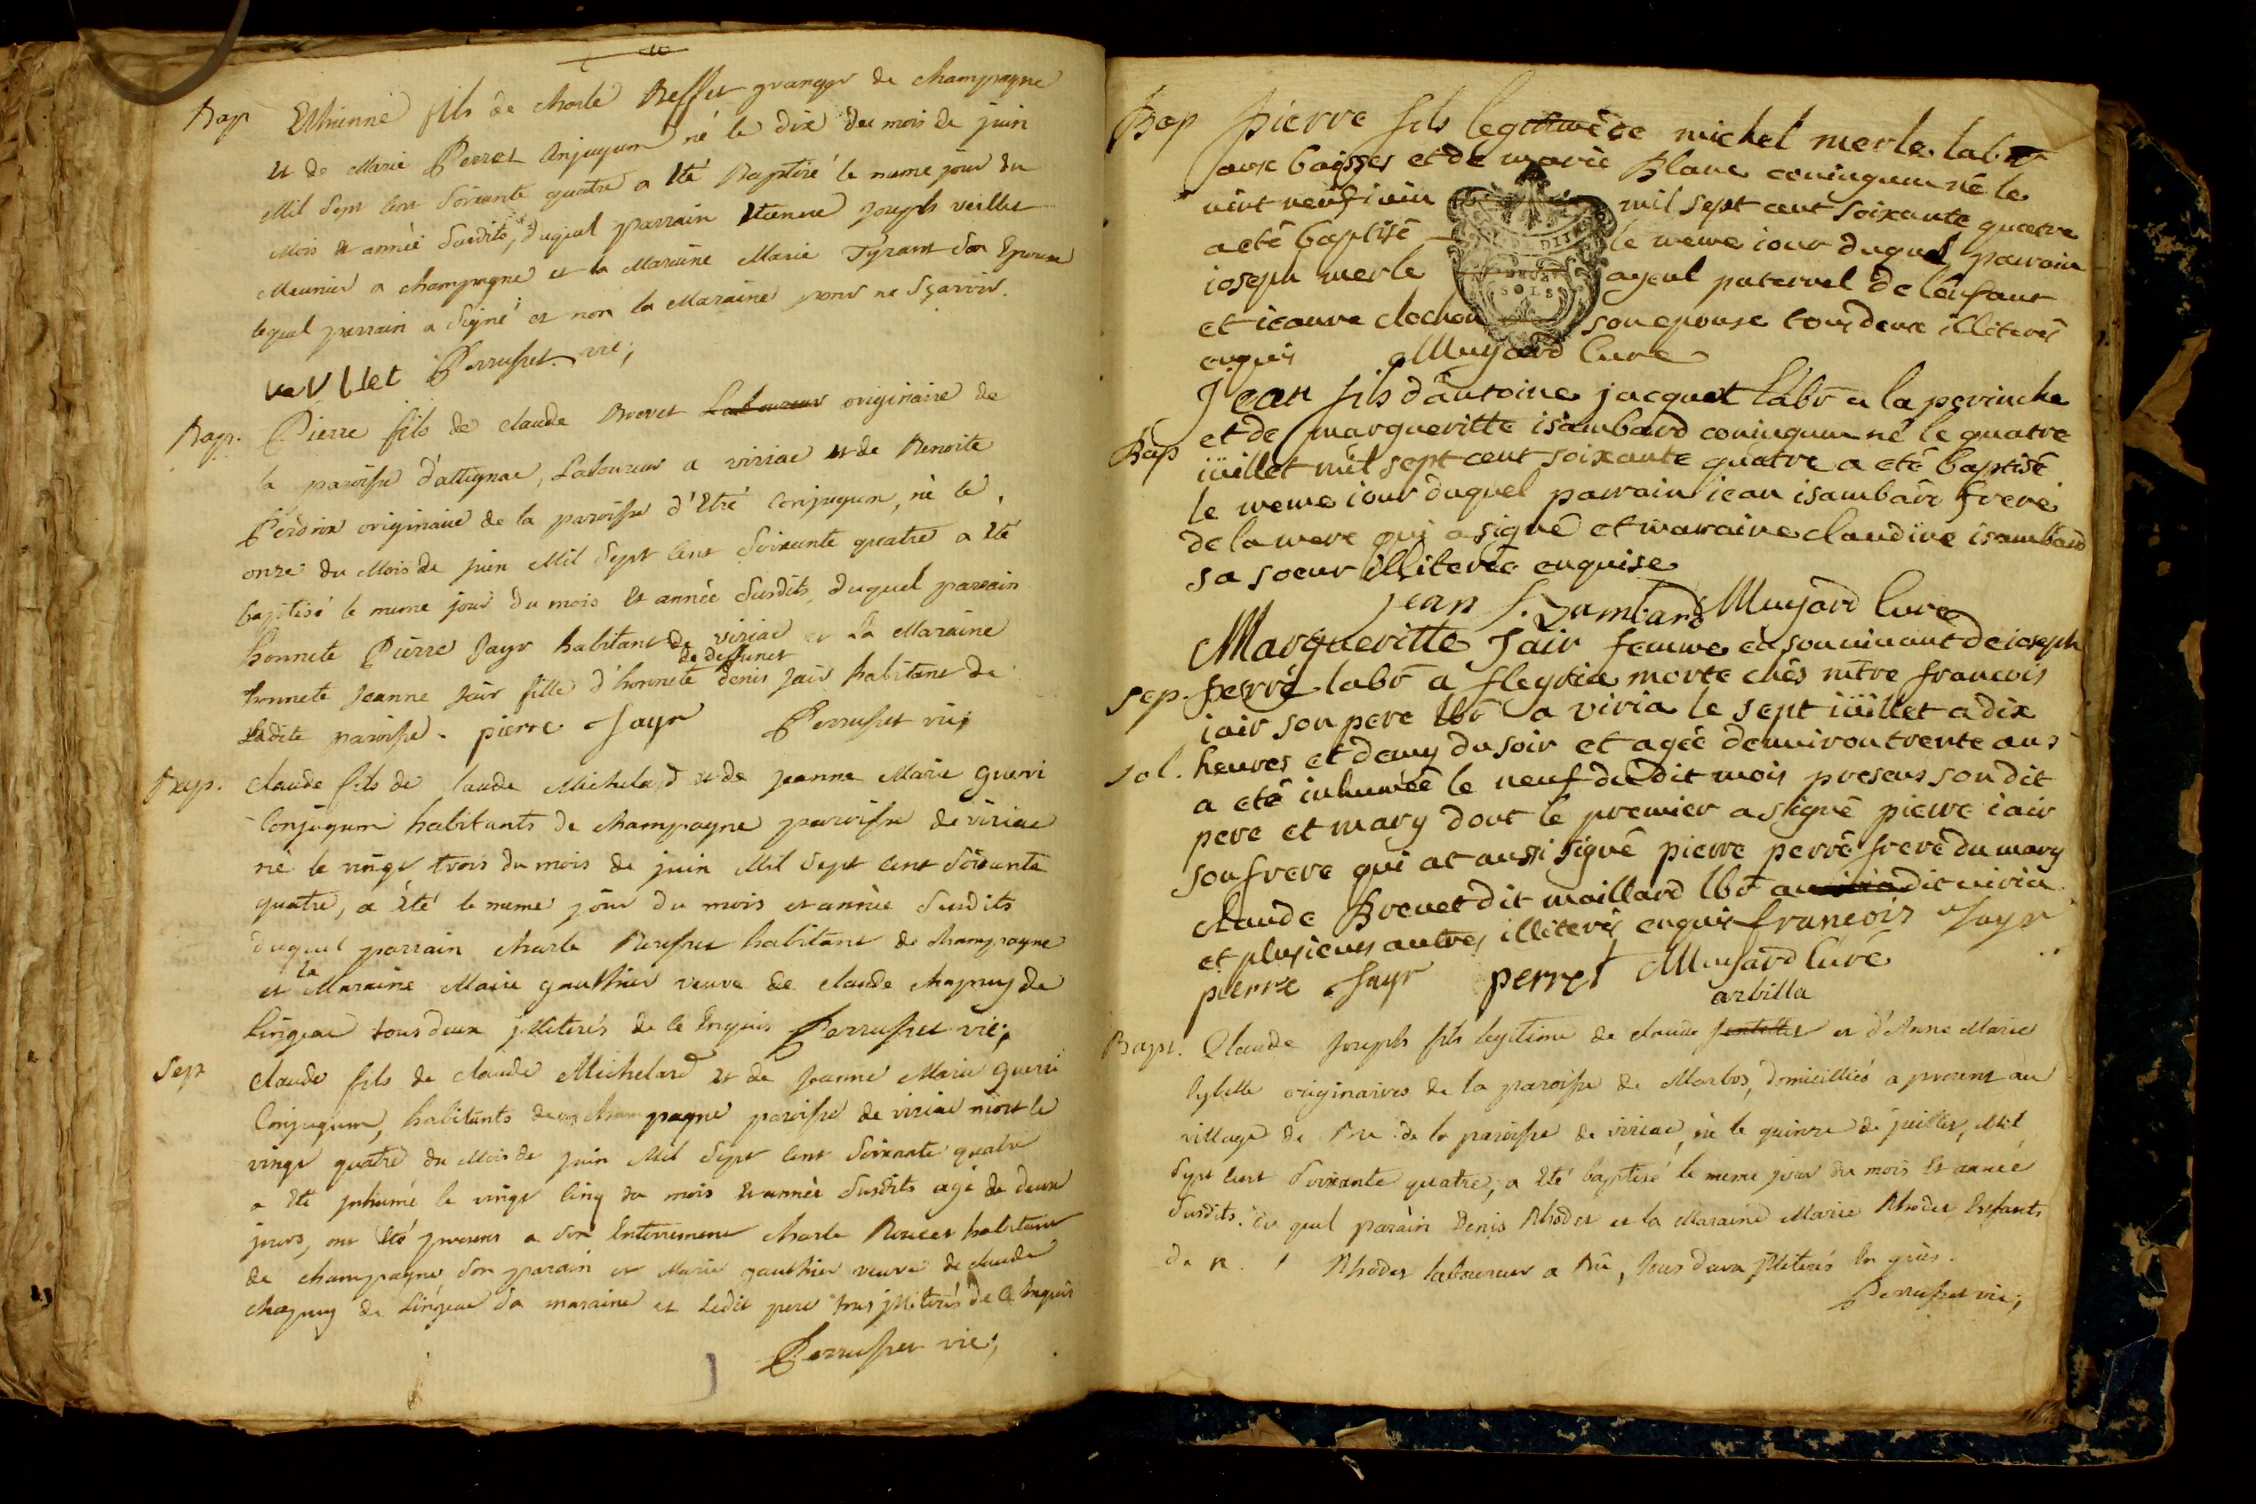 Bap Ethienne fils de charle Reffet granger de champagne
et de Marie Perret Conjugum né le dix du mois de juin
Mil Sept Cent Soixante quatre a Eté Baptisé le meme jour du
Mois et année Susdits, duquel parrain Etienne Joseph veillet
Meunier a champagne et la Maraine Marie Tyrant Son Epouse
lequel parrain a Signé et non la Maraine pour ne Sçavoir.
veVllet Perruset vic;
Bap. Pierre fils de claude Brevet Laboureur originaire de
la paroisse d'attignac, Laboureur a viriac et de Benoite
Perdrix originaire de la paroisse d'Etré Conjugum, né le
onze du Mois de juin Mil Sept Cent Soixante quatre a Eté
baptisé le meme jour du mois et année Susdits, duquel parrain
honnete Pierre Jayr habitant de viriac et la Maraine
de deffunct
honnete Jeanne Jair fille d'honnete denis Jair habitant de
Ladite paroisse. pierre Jayr Perruset vic;
Bap. claude fils de Claude Michelard et de Jeanne Marie Guerri
Conjugum habitants de champagne paroisse de viriac
né le vingt trois du mois de juin Mil Sept Cent Soixante
quatre, a Eté le meme jour du mois et année Susdits
duquel parrain charle habitant de champagne
la
et Maraine Marie gauthier veuve de claude chapuy de
Lingeac tous deux jlliterés de ce Enquis Perruset vic;
Sep claude fils de claude Michelard et de Jeanne Marie Guerri
Conjugum, habitants de champagne paroisse de viriac mort le
vingt quatre du Mois de juin Mil Sept Cent Soixante quatre
a Eté jnhumé le vingt Cinq du mois et année Susdits agé de deux
jours, ont Eté presens a Son Enterrement charle habitant
de champagne Son parain et Marie gauthier veuve de claude
chapuy de Lingeac Sa maraine et Ledit pere tous jlliterés de ce Enquis
Perruset vic;
Bap pierre fils legitime de michel merle labr
aux baisses et de marie Blanc coniugum né le
vint neuf iuin mil sept cent soixante quatre
a eté baptisé le meme iour duquel parrain
ioseph merle ayeul paternel de lenfant
et ieanne clochon son epouse tous deux illiterés
enquis Muyard Curé
Jean fils dantoine jacquet labr a la pervinche
Bap et de margueritte isambard coniugum né le quatre
iüillet mil sept cent soixante quatre a eté baptisé
le meme iour duquel parrain iean isambard frere
de la mere qui a signé et marraine claudine isambard
sa soeur illiterée enquise
jean Muyard Curé
Margueritte Jair femme en son vivant de ioseph
sep. perré labr a fleyria morte chés mtre francois
iair son pere lbr a viria le sept iüillet a dix
sol. heures et demy du soir et agée denviron trente ans
a eté inhumée le neuf dudit mois presens son dit
pere et mary dont le premier a signé pierre iair
son frere qui at aussi signé pierre perré frere du mary
claude Brevet dit maillard lbr audit viria
et plusieurs autres illiterés enquis francois Jayr
pierre Jayr perret Muyard Curé
arbilla
Bapt. Claude Joseph fils legitime de claude et d'Anne Marie
originaires de la paroisse de Marbos, domiciliés a present au
village de de la paroisse de viriac, né le quinze de juillet, Mil
Sept Cent Soixante quatre, a Eté baptisé le meme jour du mois Et année
Susdits. du quel parain Denis Rhodet et la Maraine Marie Rhodet Enfants
de Rhodet laboureur a tous deux jlliterés En quis.
Perruset vic;